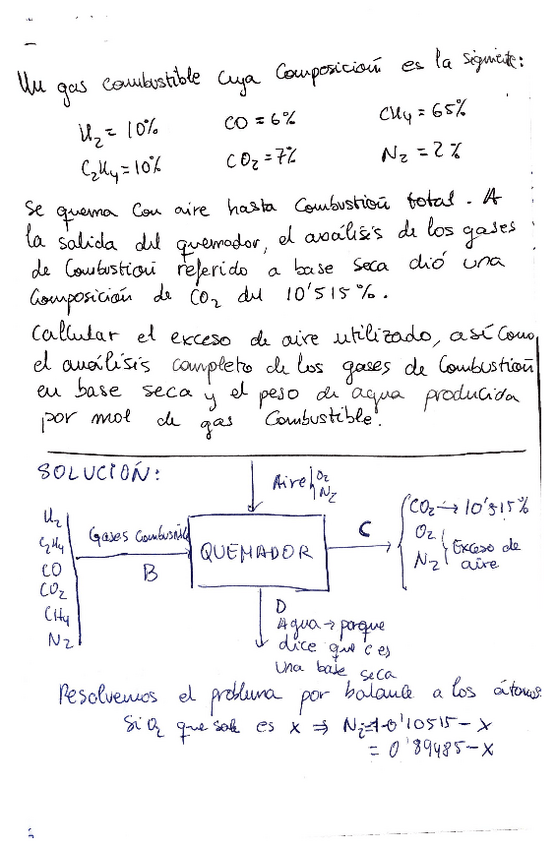 Un gas combustible cuya composición es la siguiente:
H₂ = 10% CO = 6% CH₄ = 65%
C₂H₄ = 10% CO₂ = 7% N₂ = 2%
Se quema con aire hasta combustión total. A
la salida del quemador, el análisis de los gases
de combustión referido a base seca dió una
composición de CO₂ del 10'515%.
Calcular el exceso de aire utilizado, así como
el análisis completo de los gases de combustión
en base seca y el peso de agua producida
por mol de gas combustible.
SOLUCIÓN:
Aire O₂
N₂
H₂
C₂H₄
CO
CO₂
CH₄
N₂
Gases Combustible
B
QUEMADOR
C
CO₂ → 10'515%
O₂
N₂
Exceso de
aire
D
Agua → porque
dice que C es
una base seca
Resolvemos el problema por balance a los átomos:
Si O₂ que sale es x ⇒ N₂ = 1-0'10515-x
= 0'89485-x